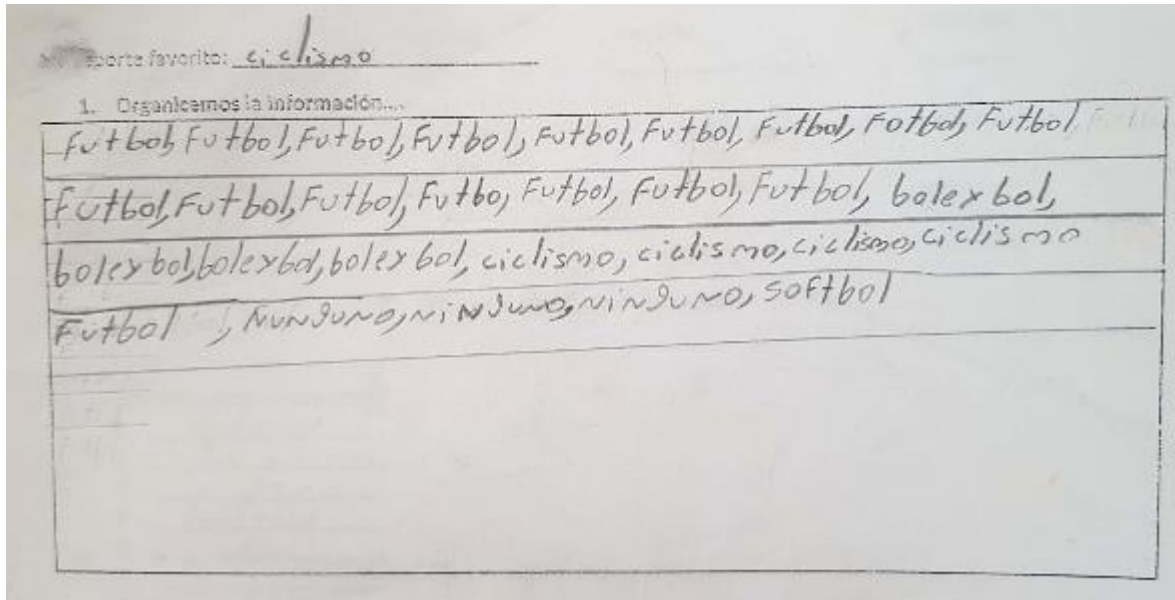 porte favorito: ciclismo
1. Organicemos la información...
Futbol, Futbol, Futbol, Futbol, Futbol, Futbol, Futbol, Fotbol, Futbol
Futbol, Futbol, Futbol, Futbo, Futbol, Futbol, Futbol, bolexbol,
bolexbol, bolexbol, bolexbol, ciclismo, ciclismo, ciclismo, ciclismo
Futbol, Nunguno, ninguno, ninguno, softbol